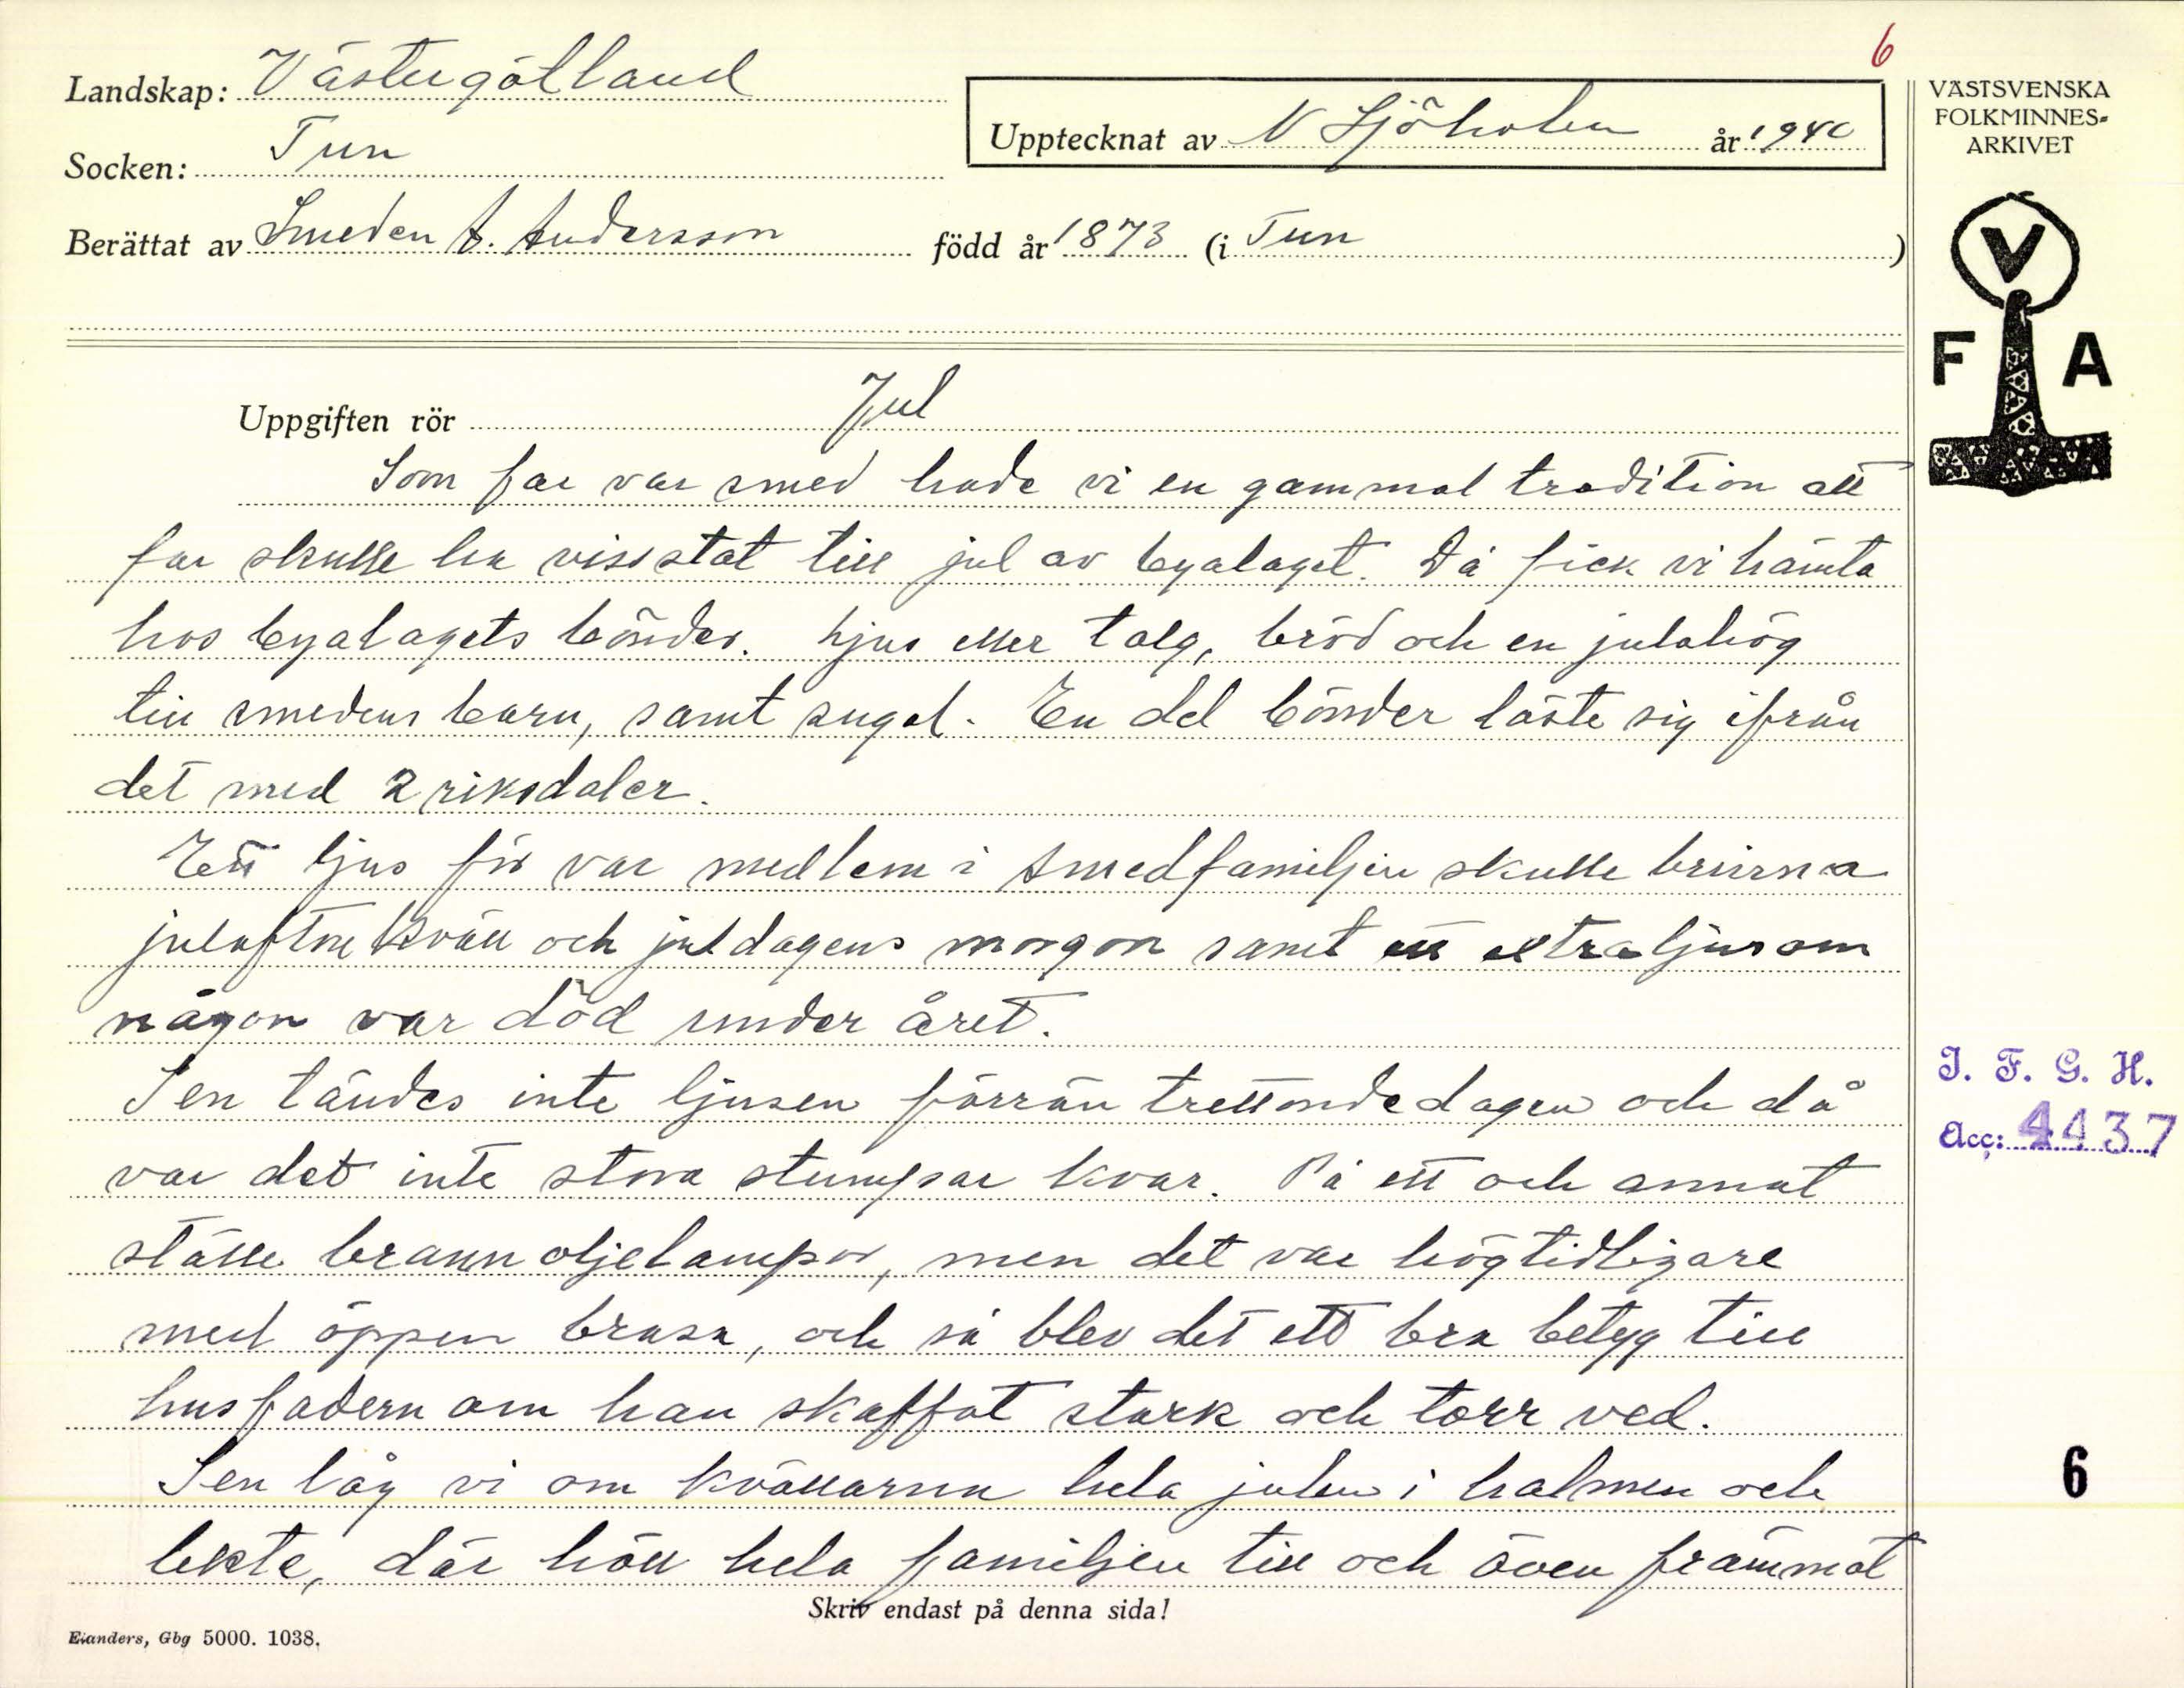 6
Landskap: Västergötland
Socken: Tun
Upptecknat av N Sjöholm år 1940
Berättat av Smeden A. Andersson född år 1873 (i Tun)
VÄSTSVENSKA
FOLKMINNES-
ARKIVET
V
F A
Uppgiften rör Jul
Som far var smed hade vi en gammal tradition att
far skulle ha viss stat till jul av byalaget. Då fick vi hämta
hos byalagets bönder. Ljus eller talg, bröd och en julahög
till smedens barn, samt sugel. En del bönder löste sig ifrån
det med 2 riksdaler.
Ett ljus för var medlem i smedfamiljen skulle brinna
julaftne kväll och juldagens morgon samt ett extra ljus om
någon var död under året.
Sen tändes inte ljusen förrän trettondedagen och då
var det inte stora stumpar kvar. På ett och annat
ställe brann oljelampor, men det var högtidligare
med öppen brasa, och så blev det ett bra betyg till
husfadern om han skaffat stark och torr ved.
Sen låg vi om kvällarna hela julen i halmen och
lekte, där höll hela familjen till och även främmat
I. F. G. H.
Acc: 4437
6
Skriv endast på denna sida!
Elanders, Gbg 5000. 1038.